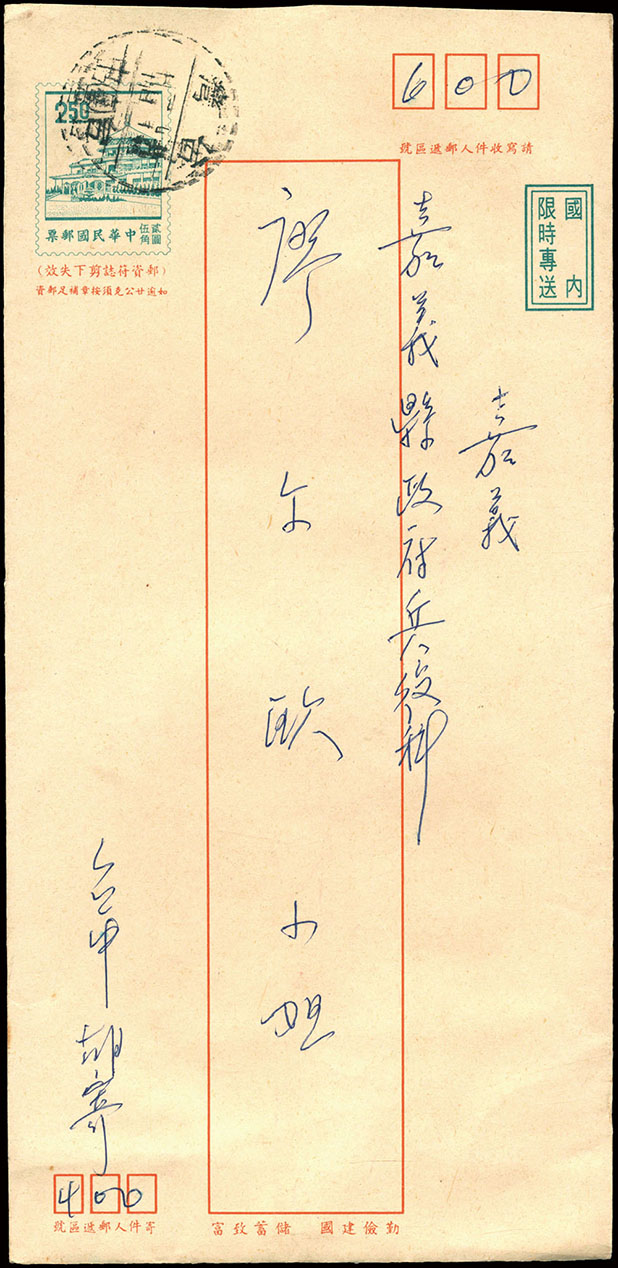 600
請寫收件人郵遞區號
國內
限時專送
嘉義
嘉義縣政府兵役科
廖 歐 小姐
台中 胡寄
400
寄件人郵遞區號
勤儉建國 儲蓄致富
250
貳圓伍角
中華民國郵票
(郵資符誌剪下失效)
如逾廿公克須按章補足郵資
臺